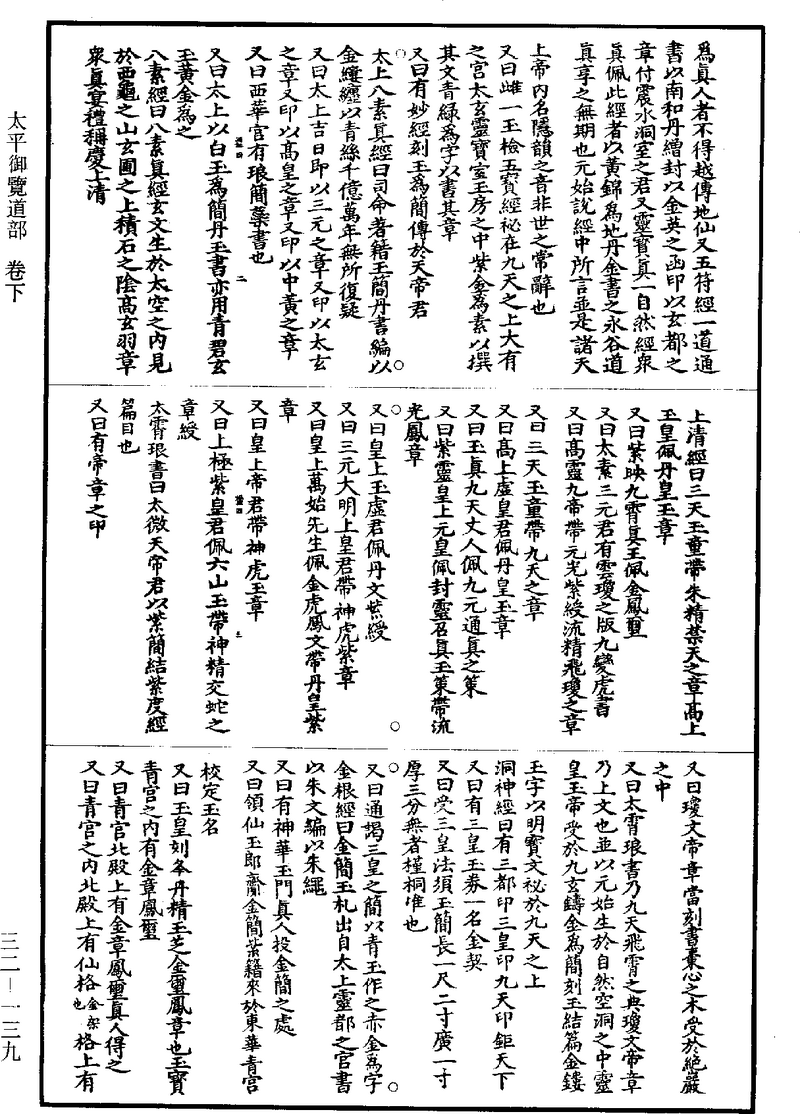 太平御覽道部　卷下
三二－一三九
爲真人者不得越傳地仙又五符經一道通
書以南和丹繒封以金英之函印以玄都之
章付震水洞室之君又靈寶真一自然經衆
真佩此經者以黃錦爲地丹金書之永谷道
真享之無期也元始說經中所言並是諸天
上帝内名隱韻之音非世之常辭也
又曰雌一玉檢五寶經祕在九天之上大有
之宮太玄靈寶室玉房之中紫金爲素以撰
其文青綠爲字以書其章
又曰有妙經刻玉爲簡傳於天帝君
太上八素真經曰司命著籍玉簡丹書編以
金縷纏以青絲千億萬年無所復疑
又曰太上吉日即以三元之章又印以太玄
之章又印以高皇之章又印以中黃之章
又曰西華宮有琅簡蘂書也
又曰太上以白玉爲簡丹玉書亦用青碧玄
玉黃金爲之
八素經曰八素真經玄文生於太空之内見
於西龜之山玄圃之上積石之陰高玄羽章
衆真宴禮稱慶上清
上清經曰三天玉童帶朱精禁天之章高上
玉皇佩丹皇玉章
又曰紫映九霄真王佩金鳳璽
又曰太素三元君有雲瓊之版九變虎書
又曰高靈九帝帶元光紫綬流精飛瓊之章
又曰三天玉童帶九天之章
又曰高上虛皇君佩丹皇玉章
又曰玉真九天丈人佩九元通真之策
又曰紫靈皇上元皇佩封靈召真玉策帶流
光鳳章
又曰皇上玉虛君佩丹文紫綬
又曰三元大明上皇君帶神虎紫章
又曰皇上萬始先生佩金虎鳳文帶丹皇紫
章
又曰皇上帝君帶神虎玉章
又曰上極紫皇君佩六山玉帶神精交蛇之
章綬
太霄琅書曰太微天帝君以紫簡結紫度經
篇目也
又曰有帝章之印
又曰瓊文帝章當刻書棗心之木受於絶巖
之中
又曰太霄琅書乃九天飛霄之典瓊文帝章
乃上文也並以元始生於自然空洞之中靈
皇玉帝受於九玄鑄金爲簡刻玉結篇金鏤
玉字以明寶文祕於九天之上
洞神經曰有三都印三皇印九天印鉅天下
又曰有三皇玉券一名金契
又曰受三皇法須玉簡長一尺二寸廣一寸
厚三分無者槿桐唯也
又曰通謁三皇之簡以青玉作之赤金爲字
金根經曰金簡玉札出自太上靈都之宮書
以朱文編以朱繩
又曰有神華玉門真人投金簡之處
又曰領仙玉郎齎金簡紫籍來於東華青宮
校定玉名
又曰玉皇刻本丹精玉芝金璽鳳章也玉寶
青宮之内有金章鳳璽
又曰青宮北殿上有金章鳳璽真人得之
又曰青宮之内北殿上有仙格金架也格上有